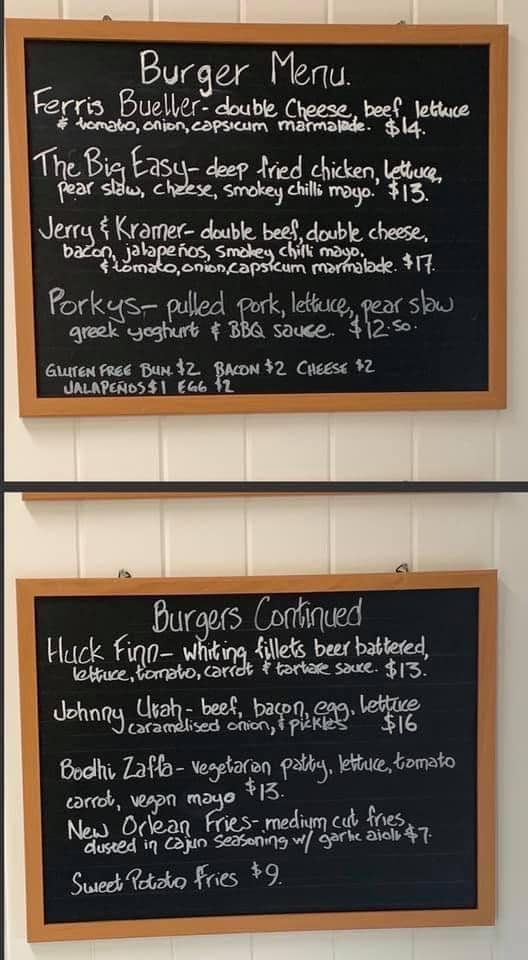 Burger Menu.
Ferris Bueller- double Cheese, beef, lettuce
& tomato, onion, capsicum marmalade. $14.
The Big Easy- deep fried chicken, lettuce,
pear slaw, cheese, smokey chilli mayo. $13.
Jerry & Kramer- double beef, double cheese,
bacon, jalapeños, smokey chilli mayo,
& tomato, onion, capsicum marmalade. $17.
Porkys- pulled pork, lettuce, pear slaw
greek yoghurt & BBQ sauce. $12.50.
GLUTEN FREE BUN $2 BACON $2 CHEESE $2
JALAPEÑOS $1 EGG $2
Burgers Continued
Huck Finn- whiting fillets beer battered,
lettuce, tomato, carrot & tartare sauce. $13.
Johnny Utah- beef, bacon, egg, lettuce
caramelised onion, & pickles $16
Bodhi Zaffa- vegetarian patty, lettuce, tomato
carrot, vegan mayo $13.
New Orlean Fries- medium cut fries
dusted in cajun seasoning w/ garlic aioli $7.
Sweet Potato fries $9.